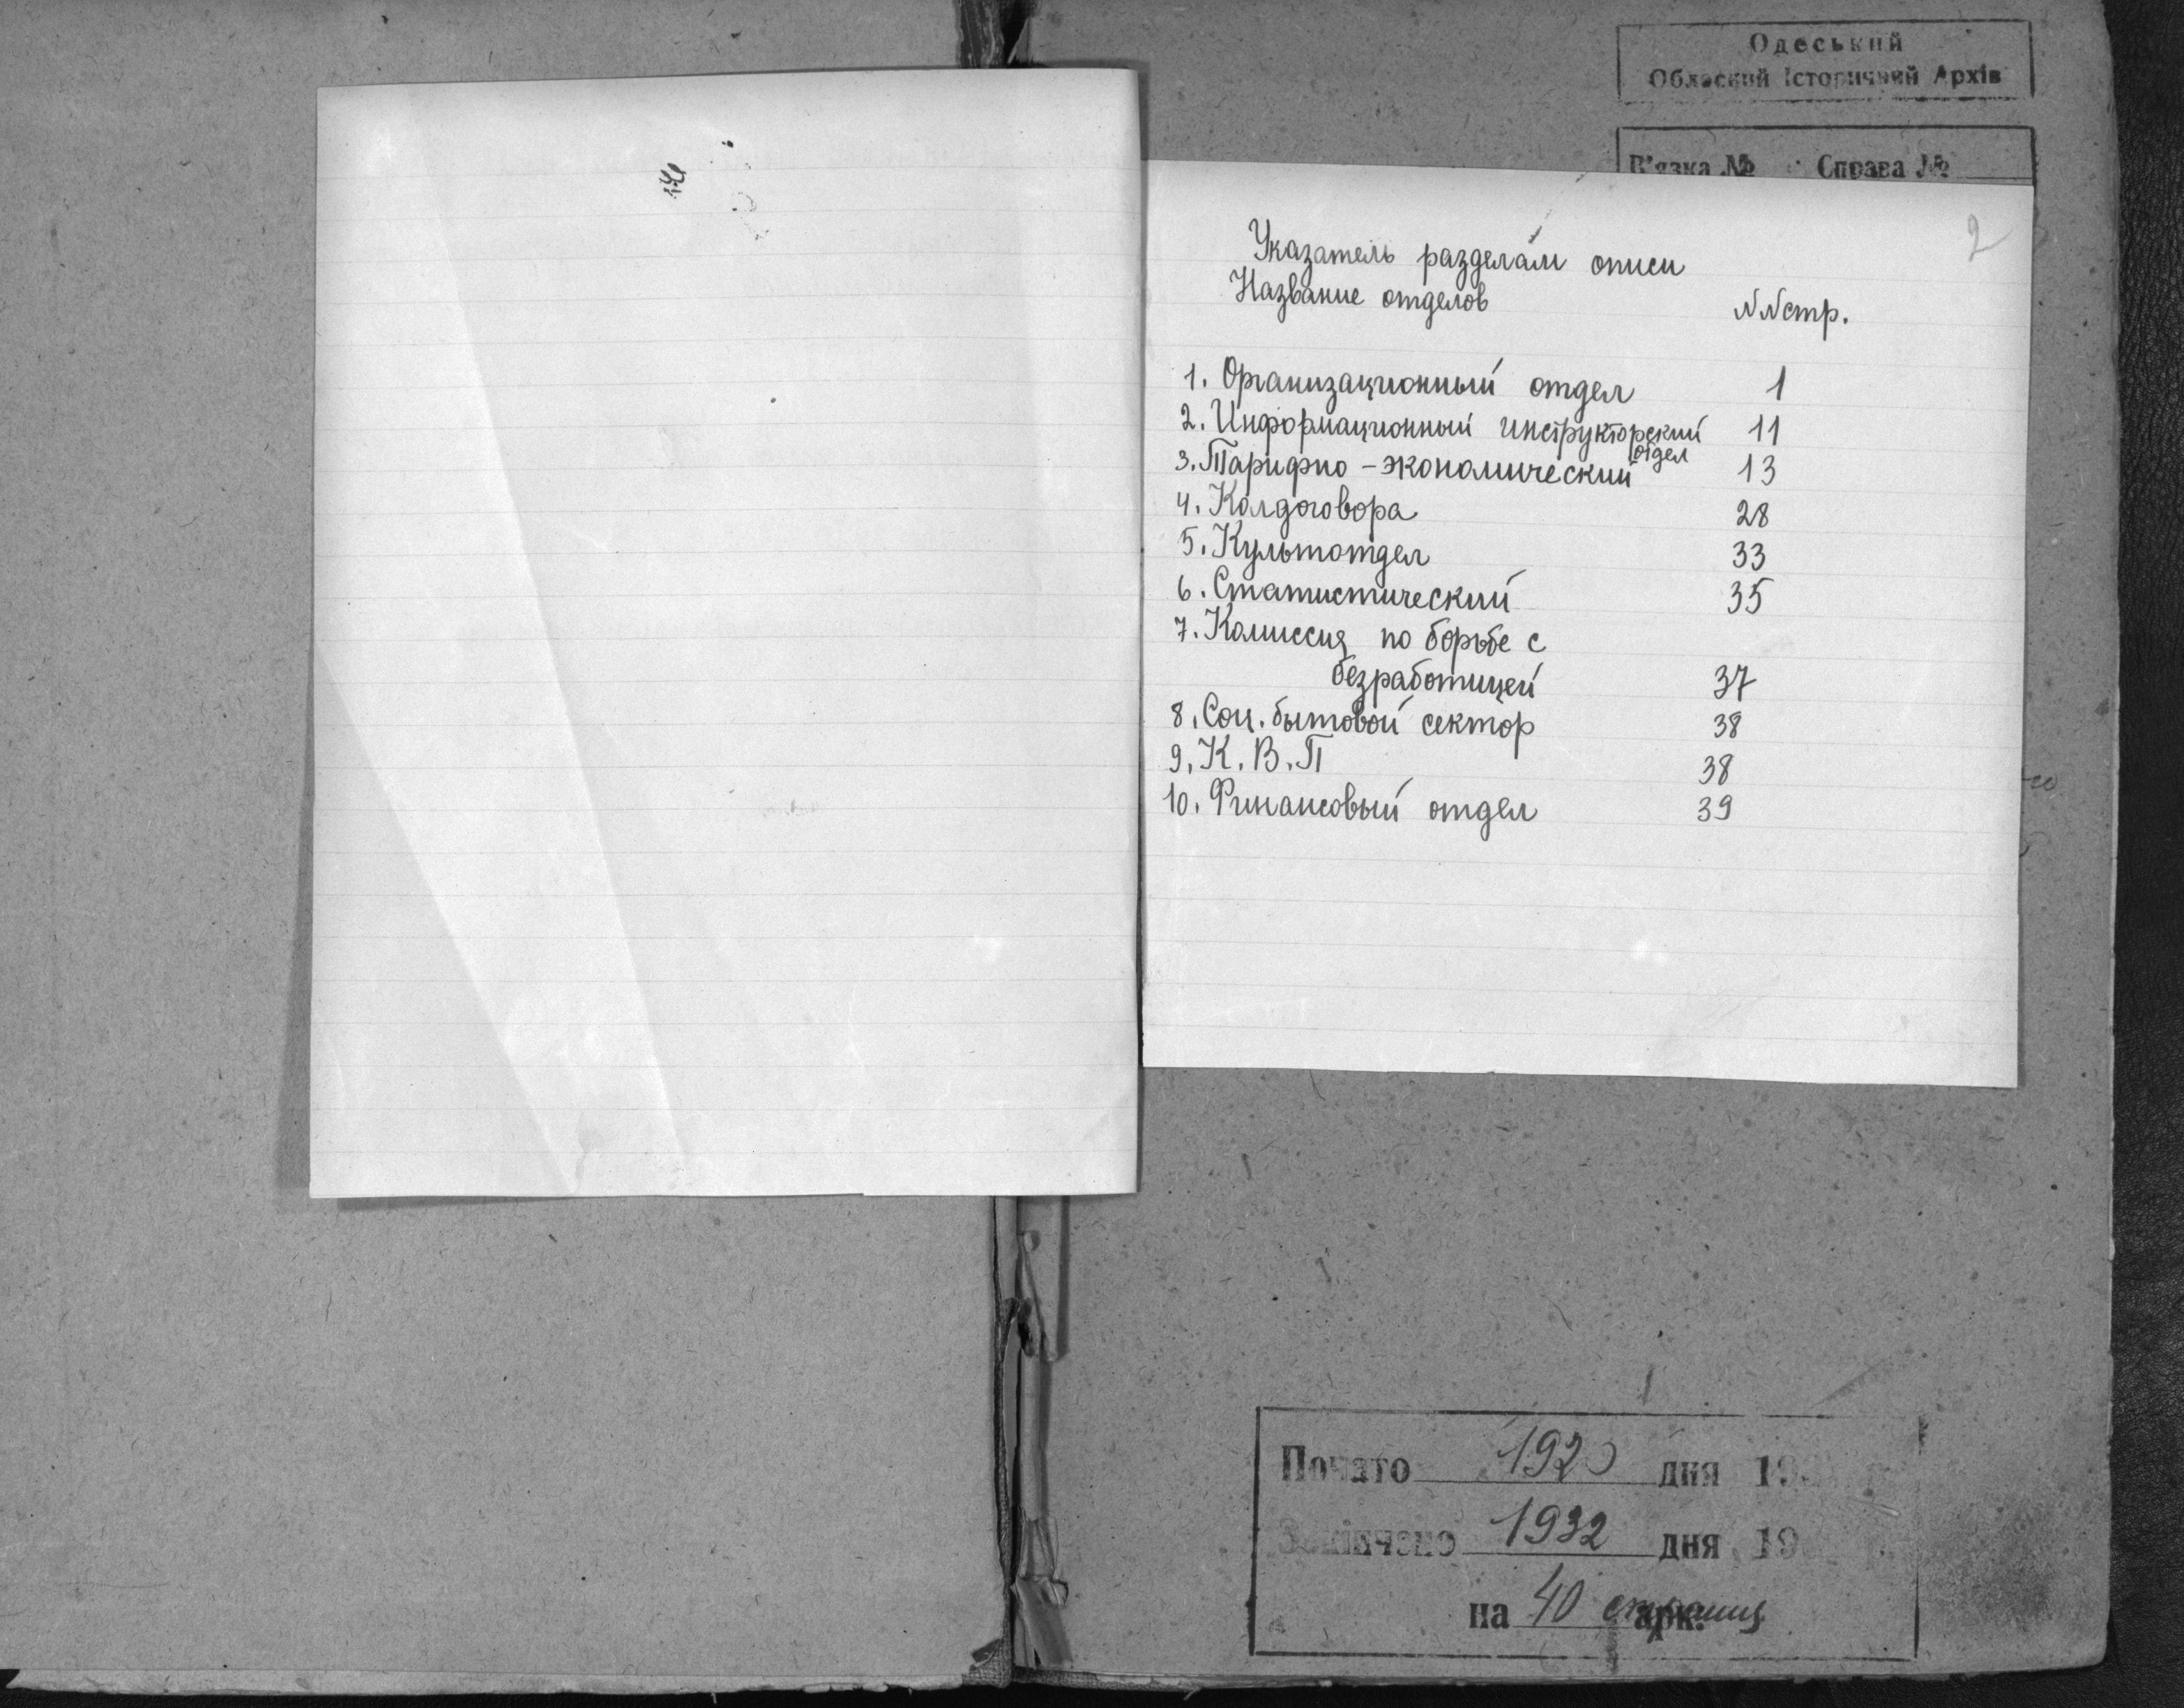 Одеський
Обласний Історичний Архів
В'язка № Справа №
2
Указатель разделам описи
Название отделов NN стр.
1. Организационный отдел 1
2. Информационный инструкторский отдел 11
3. Тарифно-экономический 13
4. Колдоговора 28
5. Культотдел 33
6. Статистический 35
7. Комиссия по борьбе с
безработицей 37
8. Соц. бытовой сектор 38
9. К. В. П 38
10. Финансовый отдел 39
Почато 1920 дня 19
Закінчено 1932 дня 19
на 40 страниц арк.